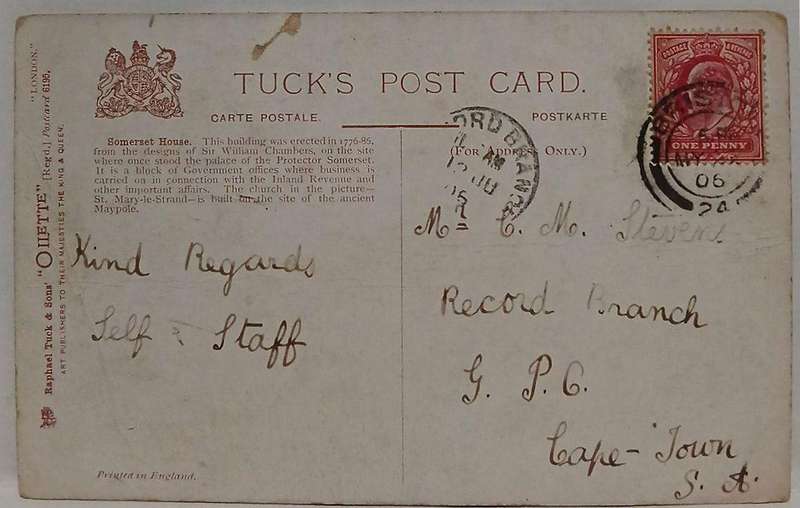 TUCK'S POST CARD.
CARTE POSTALE.
POSTKARTE
(FOR ADDRESS ONLY.)
Somerset House. This building was erected in 1776-85,
from the designs of Sir William Chambers, on the site
where once stood the palace of the Protector Somerset.
It is a block of Government offices where business is
carried on in connection with the Inland Revenue and
other important affairs. The church in the picture—
St. Mary-le-Strand—is built on the site of the ancient
Maypole.
Kind Regards
Self & Staff
Mr C. M. Stevens
Record Branch
G. P. O.
Cape-Town
S. A.
Printed in England.
Raphael Tuck & Sons' "OILETTE" [Regd.] Postcard 6195,
"LONDON."
ART PUBLISHERS TO THEIR MAJESTIES THE KING & QUEEN.
POSTAGE & REVENUE
ONE PENNY
ORD BRANC
AM
JU
06
06
24